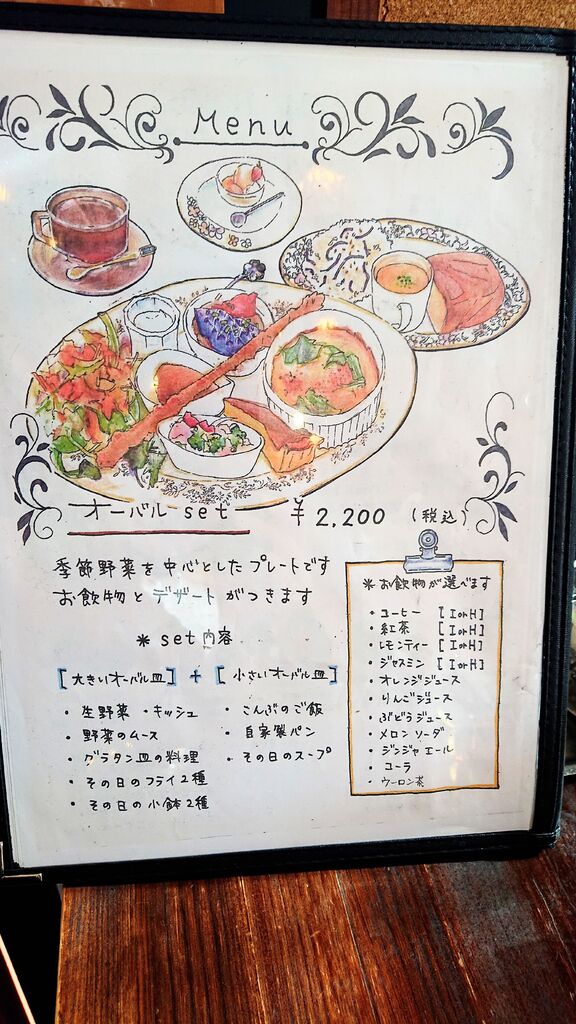 Menu
オーバル set ¥2,200 (税込)
季節野菜を中心としたプレートです
お飲物とデザートがつきます
* set内容
[大きいオーバル皿] + [小さいオーバル皿]
・生野菜 ・キッシュ
・野菜のムース
・グラタン皿の料理
・その日のフライ2種
・その日の小鉢2種
・こんぶのご飯
・自家製パン
・その日のスープ
*お飲物が選べます
・コーヒー [I or H]
・紅茶 [I or H]
・レモンティー [I or H]
・ジャスミン [I or H]
・オレンジジュース
・りんごジュース
・ぶどうジュース
・メロンソーダ
・ジンジャエール
・コーラ
・ウーロン茶